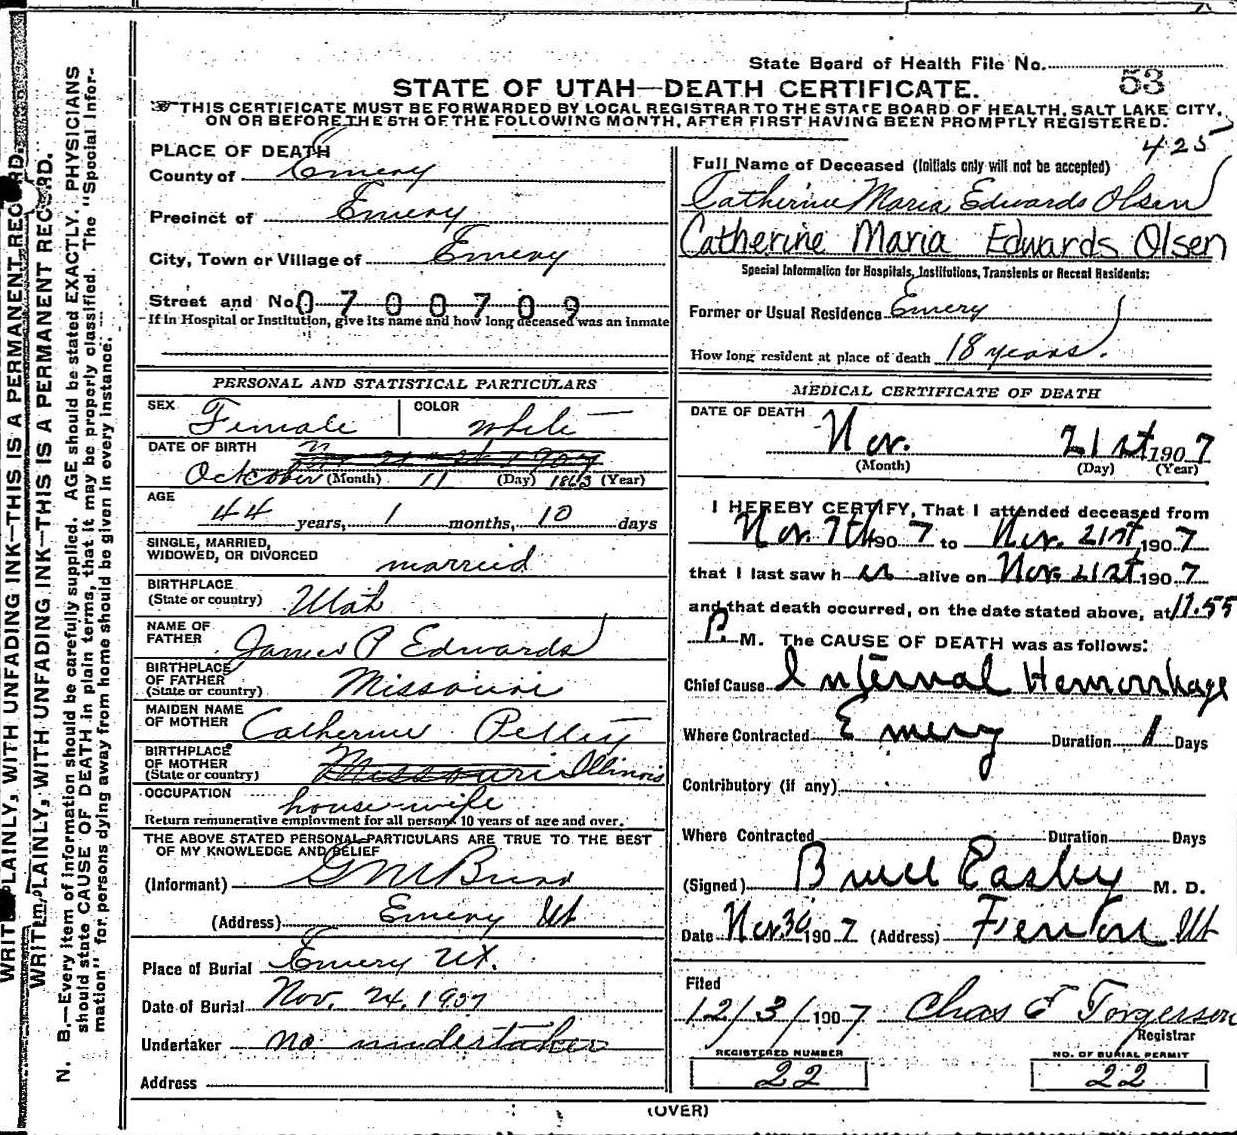 State Board of Health File No. 53
STATE OF UTAH—DEATH CERTIFICATE.
THIS CERTIFICATE MUST BE FORWARDED BY LOCAL REGISTRAR TO THE STATE BOARD OF HEALTH, SALT LAKE CITY,
ON OR BEFORE THE 5TH OF THE FOLLOWING MONTH, AFTER FIRST HAVING BEEN PROMPTLY REGISTERED.
425
PLACE OF DEATH
County of Emery
Precinct of Emery
City, Town or Village of Emery
Street and No. 0700709
If in Hospital or Institution, give its name and how long deceased was an inmate
PERSONAL AND STATISTICAL PARTICULARS
SEX Female COLOR White
DATE OF BIRTH
October (Month) 11 (Day) 1863 (Year)
AGE
44 years, 1 months, 10 days
SINGLE, MARRIED,
WIDOWED, OR DIVORCED married
BIRTHPLACE
(State or country) Utah
NAME OF
FATHER James P Edwards
BIRTHPLACE
OF FATHER
(State or country) Missouri
MAIDEN NAME
OF MOTHER Catherine
BIRTHPLACE
OF MOTHER
(State or country) Missouri Illinois
OCCUPATION housewife
Return remunerative employment for all persons 10 years of age and over.
THE ABOVE STATED PERSONAL PARTICULARS ARE TRUE TO THE BEST
OF MY KNOWLEDGE AND BELIEF
(Informant)
(Address) Emery Ut
Place of Burial Emery Ut.
Date of Burial Nov. 24, 1907
Undertaker no undertaker
Address
Full Name of Deceased (Initials only will not be accepted)
Catherine Maria Edwards Olsen
Catherine Maria Edwards Olsen
Special Information for Hospitals, Institutions, Transients or Recent Residents:
Former or Usual Residence Emery
How long resident at place of death 18 years.
MEDICAL CERTIFICATE OF DEATH
DATE OF DEATH
Nov. 21st 1907
(Month) (Day) (Year)
I HEREBY CERTIFY, That I attended deceased from
Nov. 7th 1907 to Nov. 21st, 1907
that I last saw her alive on Nov. 21st 1907
and that death occurred, on the date stated above, at 11.55
P. M. The CAUSE OF DEATH was as follows:
Chief Cause Internal Hemorrhage
Where Contracted Emery Duration 1 Days
Contributory (if any)
Where Contracted Duration Days
(Signed) Bruce Easley M. D.
Date Nov. 30, 1907 (Address) Ferron Ut
Filed
12/3/1907 Chas E Torgerson
Registrar
REGISTERED NUMBER NO. OF BURIAL PERMIT
22 22
(OVER)
WRITE PLAINLY, WITH UNFADING INK—THIS IS A PERMANENT RECORD.
WRITE PLAINLY, WITH UNFADING INK—THIS IS A PERMANENT RECORD.
N. B.—Every item of information should be carefully supplied. AGE should be stated EXACTLY. PHYSICIANS
should state CAUSE OF DEATH in plain terms, that it may be properly classified. The "Special Infor-
mation" for persons dying away from home should be given in every instance.